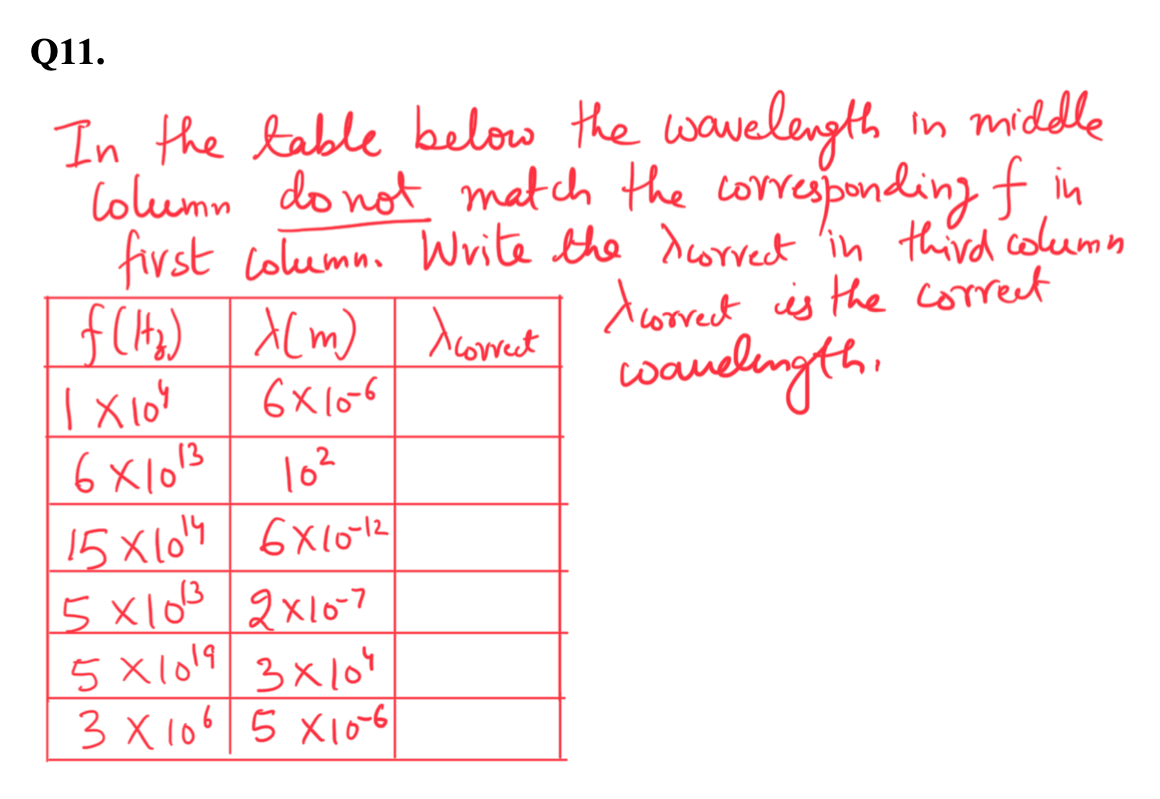 Q11.
In the table below the wavelength in middle
Column do not match the corresponding f in
first column. Write the λcorrect in third column
λcorrect is the correct
wavelength.
f(Hz) λ(m) λcorrect
1 × 10⁴ 6×10⁻⁶
6 ×10¹³ 10²
15 ×10¹⁴ 6×10⁻¹²
5 ×10¹³ 2×10⁻⁷
5 ×10¹⁹ 3×10⁴
3 × 10⁶ 5 ×10⁻⁶